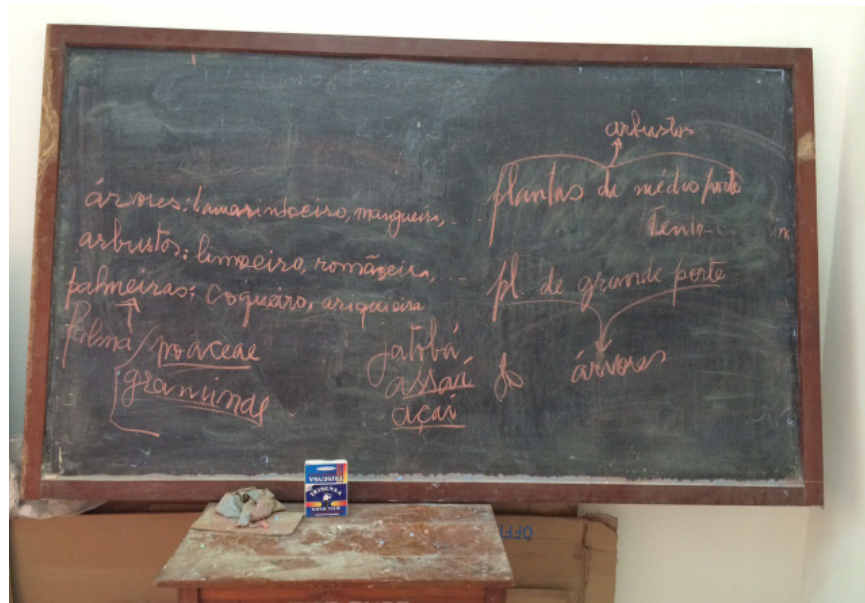 árvores: tamarindoeiro, mangueira, ...
arbustos: limoeiro, romãzeira, ...
palmeiras: coqueiro, ariquieira
palma
poaceae
graminae
jatobá
assaí
açaí
arbustos
plantas de médio porte
pl. de grande porte
árvores
TRISENSA